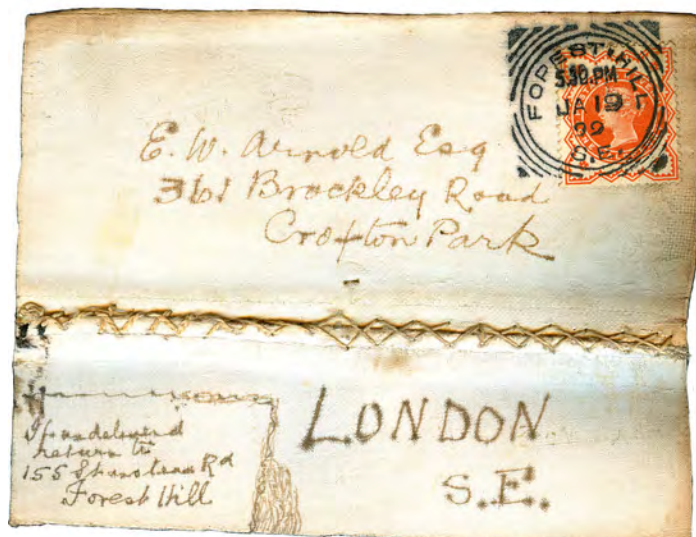 FOREST·HILL
5.30.PM
JA 19
99
S.E.
E. W. Arnold Esq
361 Brockley Road
Crofton Park
LONDON
S.E.
If undelivered
return to
155 Rd
Forest Hill